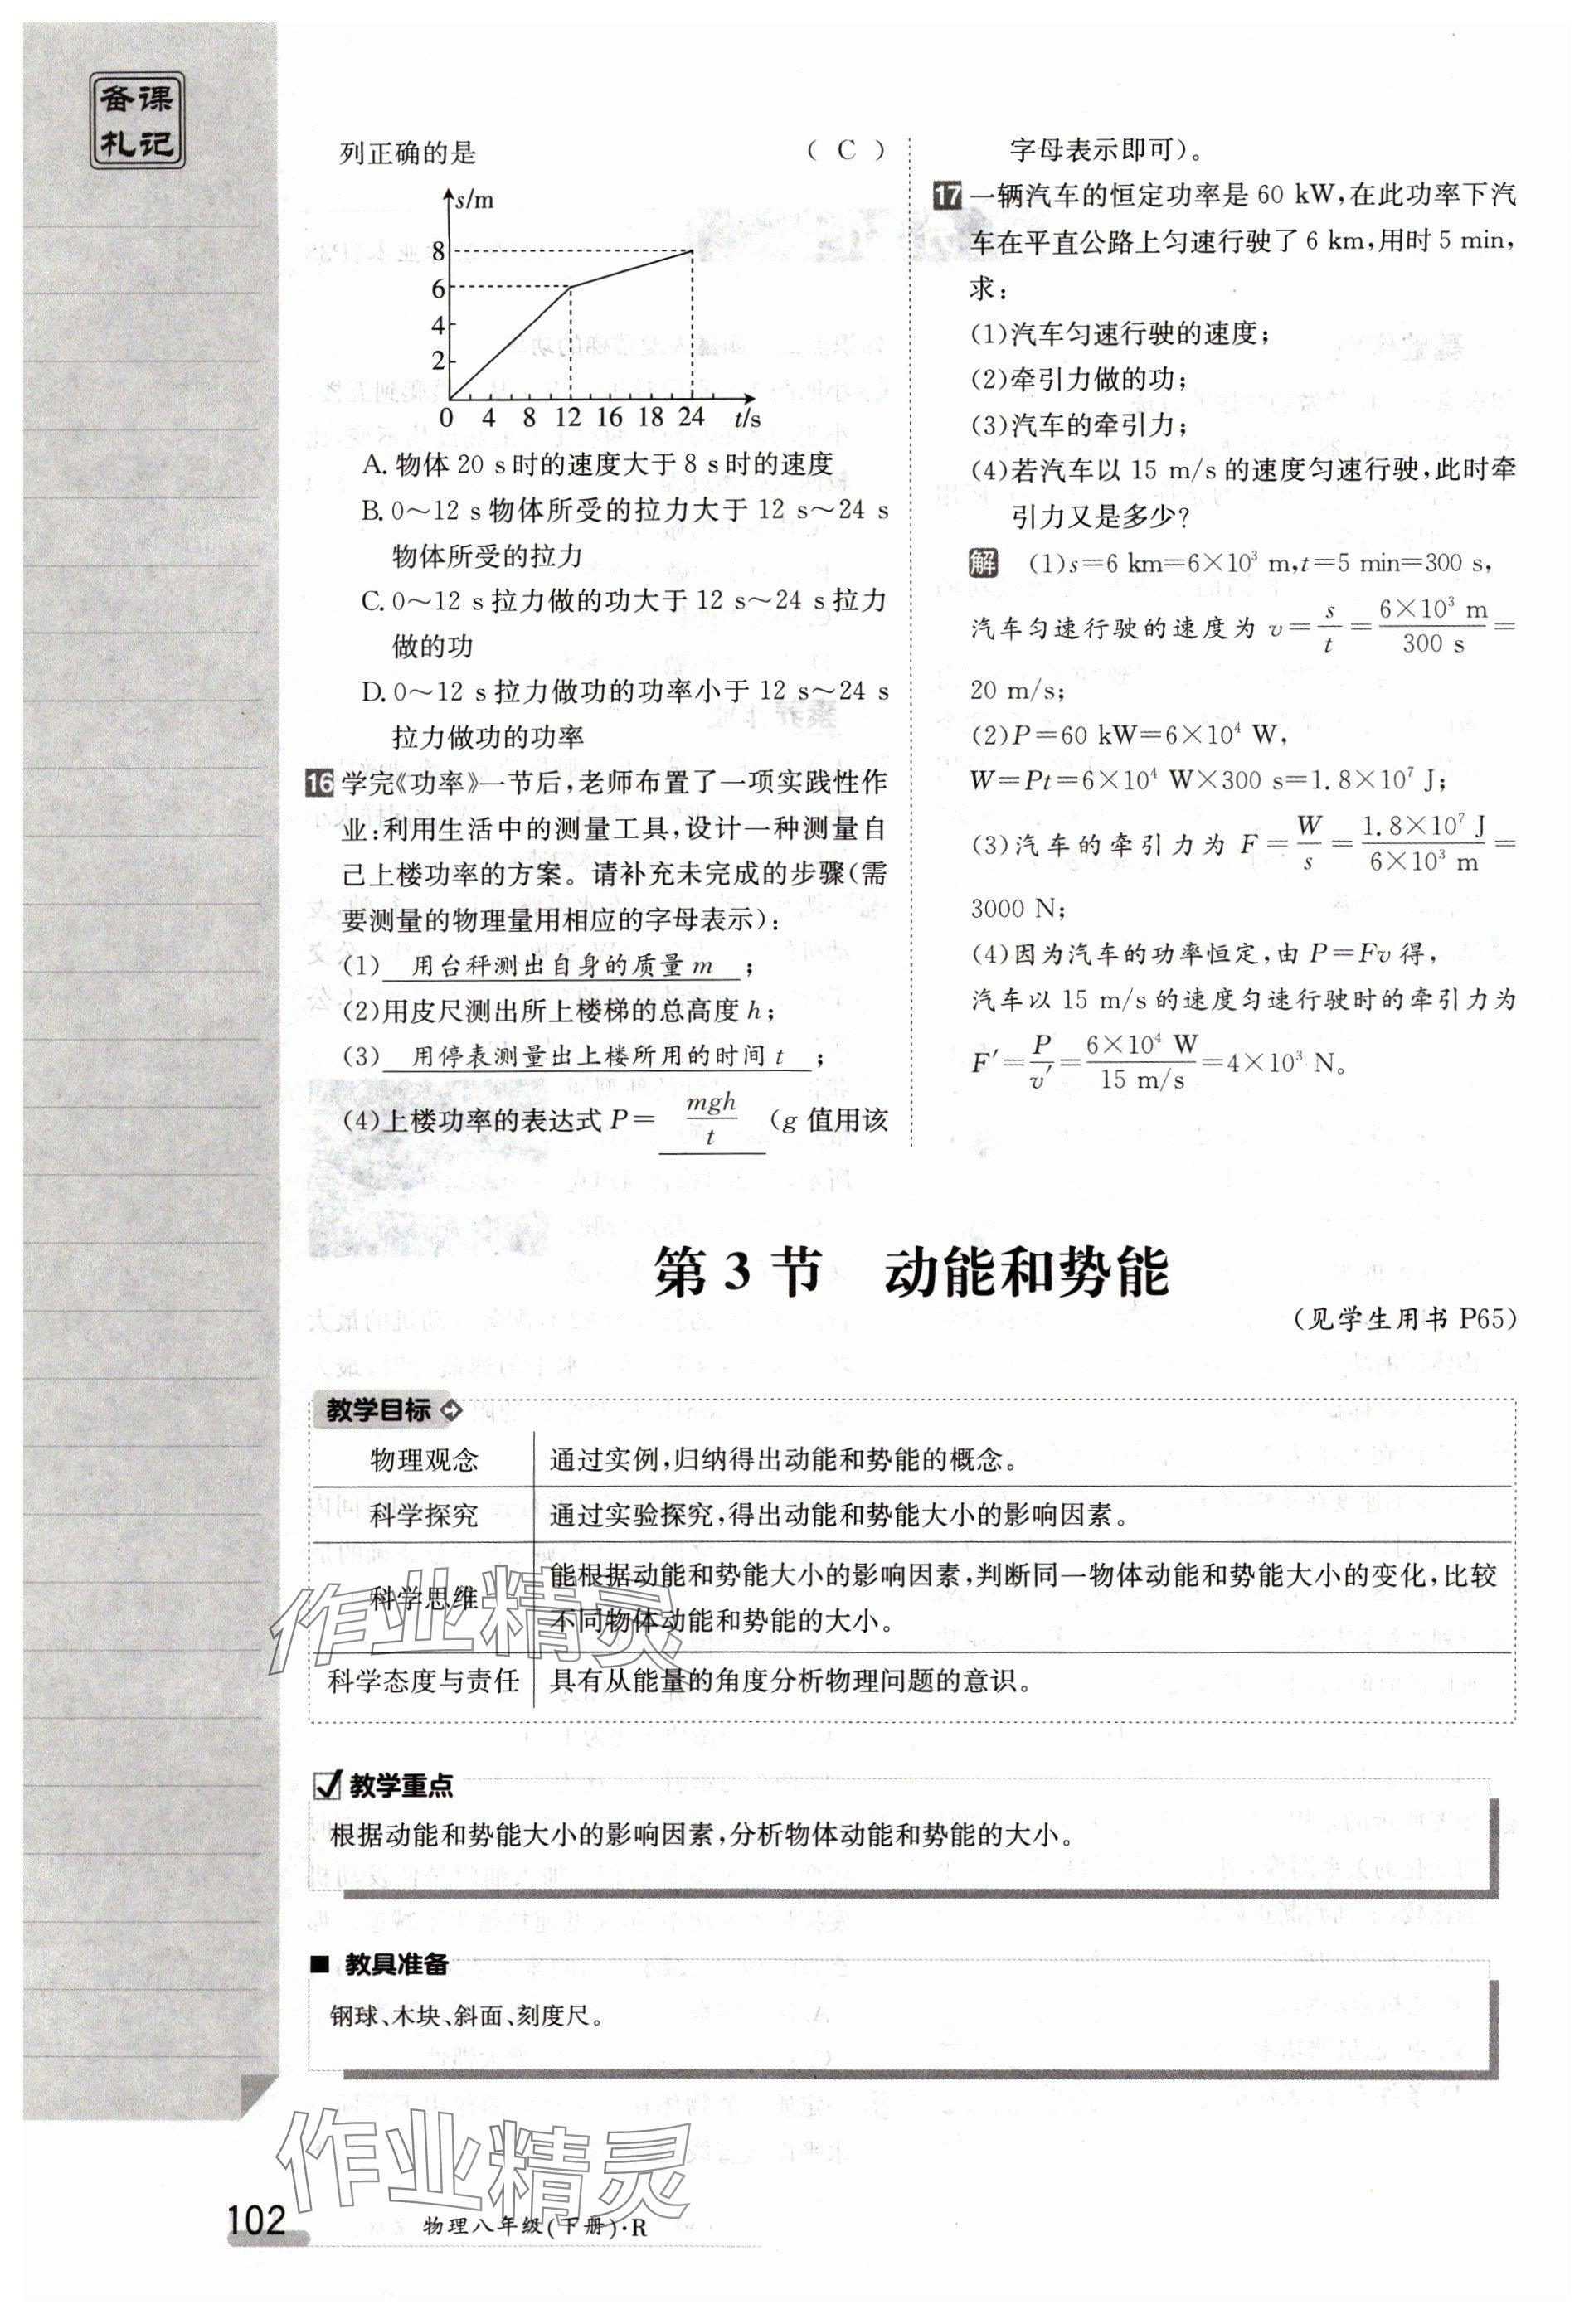 备课
札记
列正确的是 ( C )
s/m
8
6
4
2
0 4 8 12 16 18 24 t/s
A. 物体 20 s时的速度大于8 s时的速度
B. 0～12 s物体所受的拉力大于 12 s～24 s
物体所受的拉力
C. 0～12 s拉力做的功大于 12 s～24 s拉力
做的功
D. 0～12 s拉力做功的功率小于 12 s～24 s
拉力做功的功率
16 学完《功率》一节后,老师布置了一项实践性作
业:利用生活中的测量工具,设计一种测量自
己上楼功率的方案。请补充未完成的步骤(需
要测量的物理量用相应的字母表示):
(1) 用台秤测出自身的质量 m ;
(2)用皮尺测出所上楼梯的总高度 h;
(3) 用停表测量出上楼所用的时间 t ;
(4)上楼功率的表达式 P= mgh/t (g 值用该
字母表示即可)。
17 一辆汽车的恒定功率是 60 kW,在此功率下汽
车在平直公路上匀速行驶了 6 km,用时 5 min,
求:
(1)汽车匀速行驶的速度;
(2)牵引力做的功;
(3)汽车的牵引力;
(4)若汽车以 15 m/s 的速度匀速行驶,此时牵
引力又是多少?
解 (1)s=6 km=6×10³ m,t=5 min=300 s,
汽车匀速行驶的速度为 v=s/t=6×10³ m/300 s=
20 m/s;
(2)P=60 kW=6×10⁴ W,
W=Pt=6×10⁴ W×300 s=1.8×10⁷ J;
(3)汽车的牵引力为 F=W/s=1.8×10⁷ J/6×10³ m=
3000 N;
(4)因为汽车的功率恒定,由 P=Fv 得,
汽车以 15 m/s 的速度匀速行驶时的牵引力为
F′=P/v′=6×10⁴ W/15 m/s=4×10³ N。
第 3 节 动能和势能
(见学生用书 P65)
教学目标
物理观念 通过实例,归纳得出动能和势能的概念。
科学探究 通过实验探究,得出动能和势能大小的影响因素。
科学思维 能根据动能和势能大小的影响因素,判断同一物体动能和势能大小的变化,比较
不同物体动能和势能的大小。
科学态度与责任 具有从能量的角度分析物理问题的意识。
作业精灵
教学重点
根据动能和势能大小的影响因素,分析物体动能和势能的大小。
教具准备
钢球、木块、斜面、刻度尺。
作业精灵
102 物理八年级(下册)·R